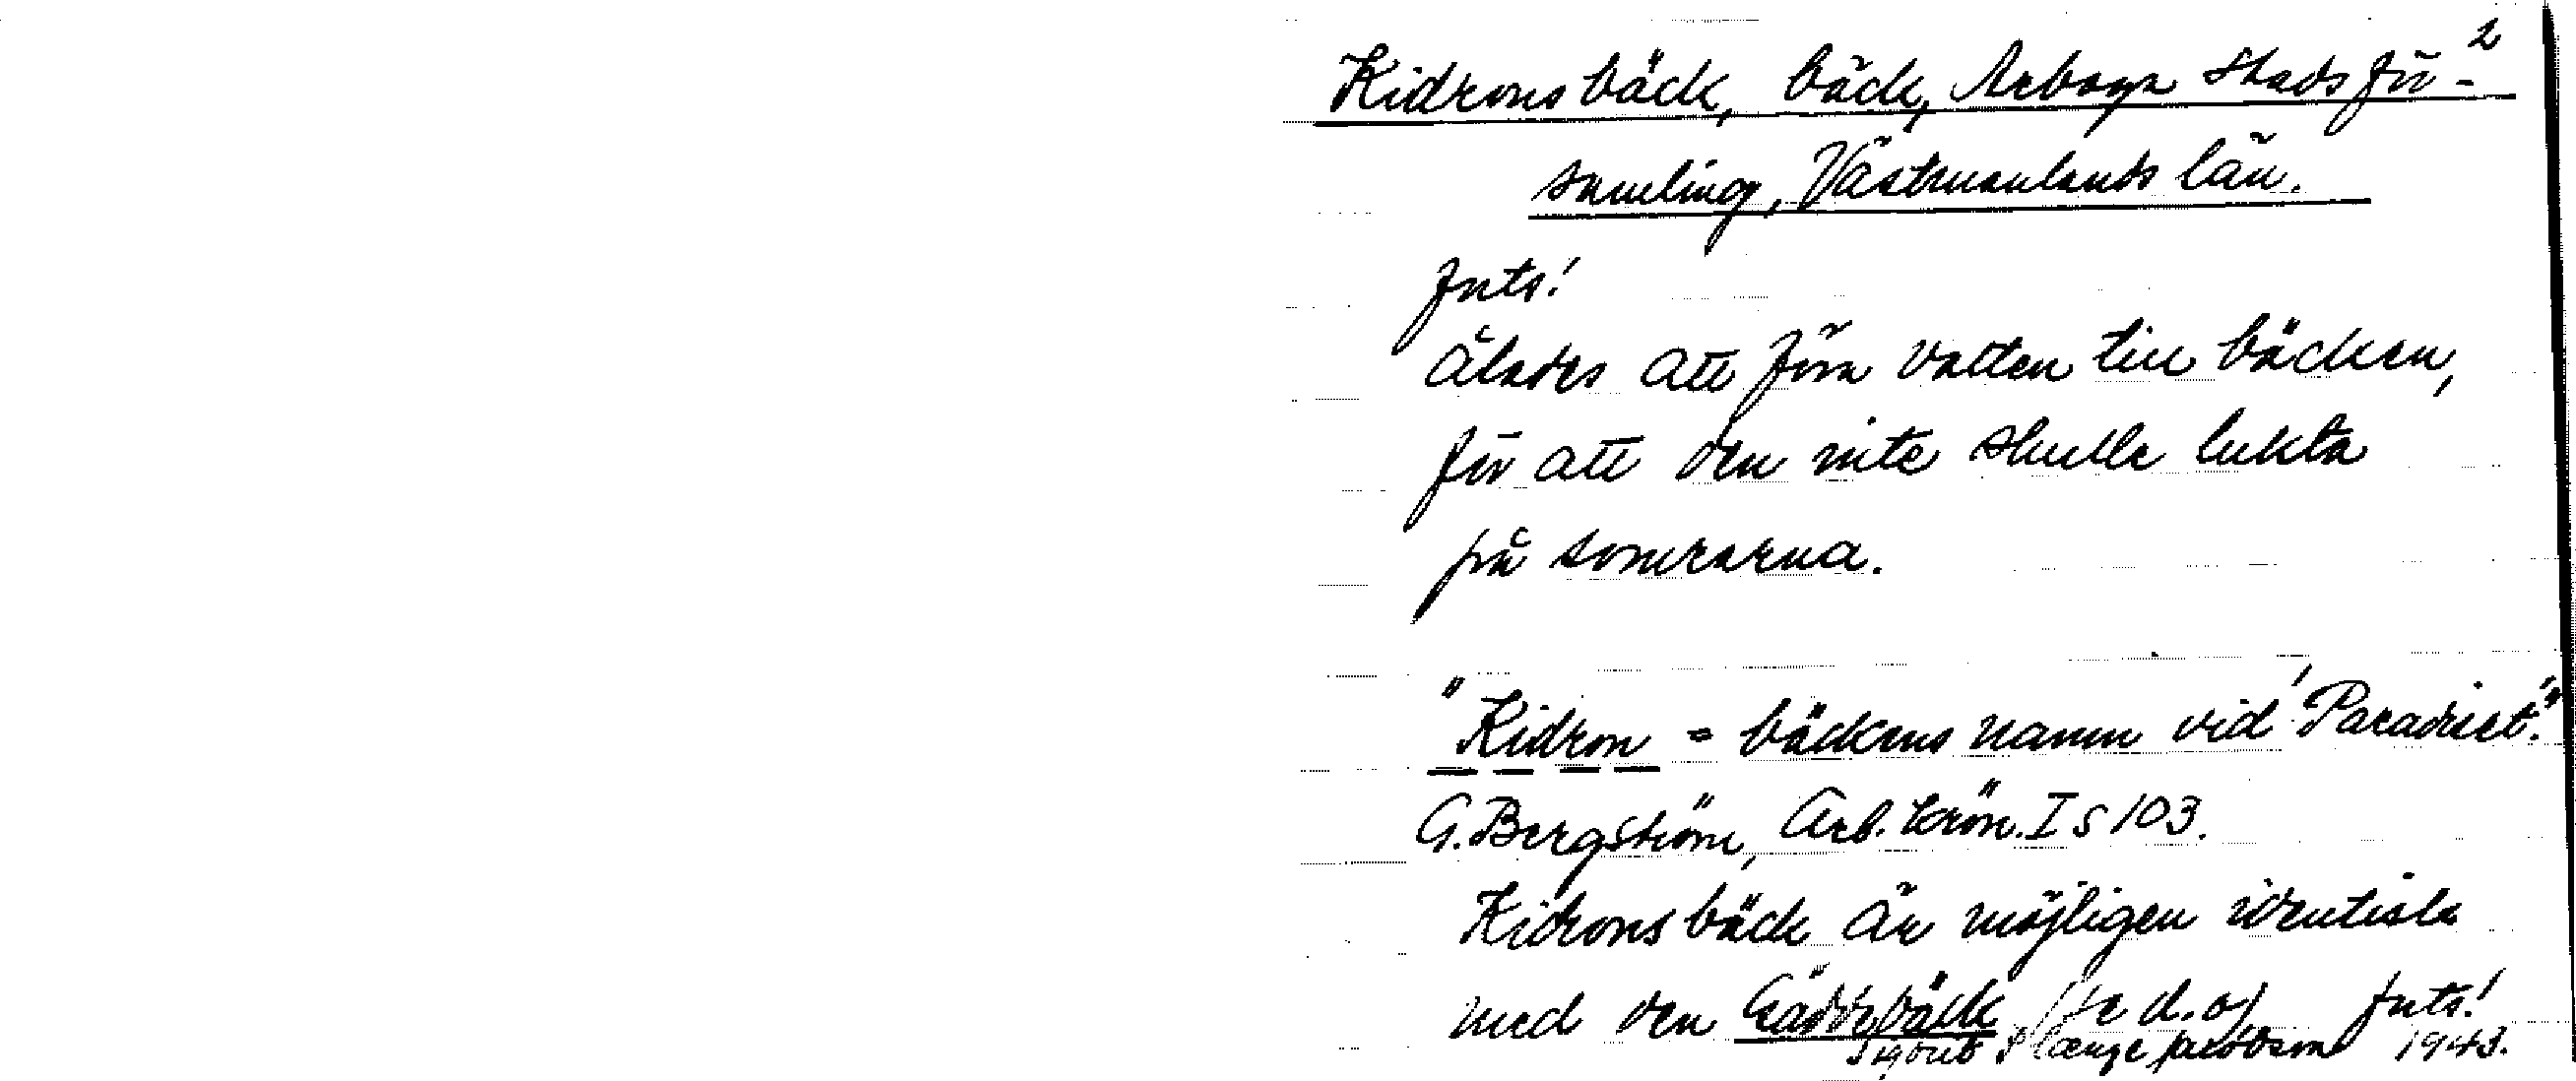 2
Kidronsbäck, bäck, Arboga stadsför-
samling, Västmanlands län.
forts!
ålades att föra vatten till bäcken,
för att den inte skulle lukta
på somrarna.
"Kidron = bäckens namn vid 'Paradiset'."
G. Bergström, Arb. krön. I s 103.
Kidronsbäck är möjligen identisk
med den Gäddebäck (se d.o) forts!
Sigurd Jacobson 1943.